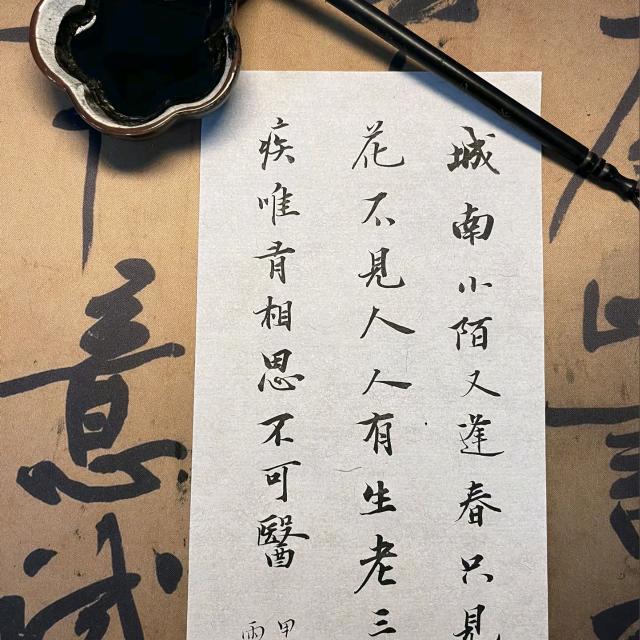 城南小陌又逢春只見
花不見人人有生老三
疾唯有相思不可醫
甲
雨
意